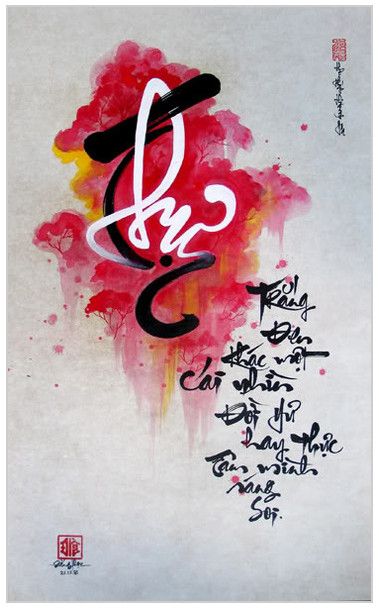 Thực
Trắng
Đen
khác một
cái nhìn
Đời hư
hay thực
Tâm mình
sáng
soi.